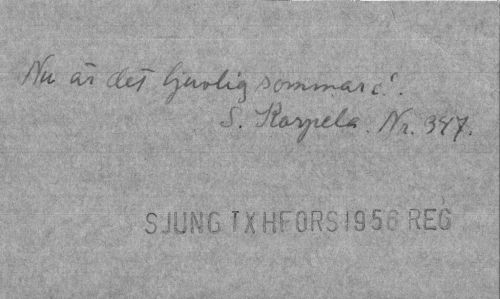 Nu är det ljuvlig sommar i.
S. Karpela. Nr. 347.
SJUNG IX HFORS 1956 REG